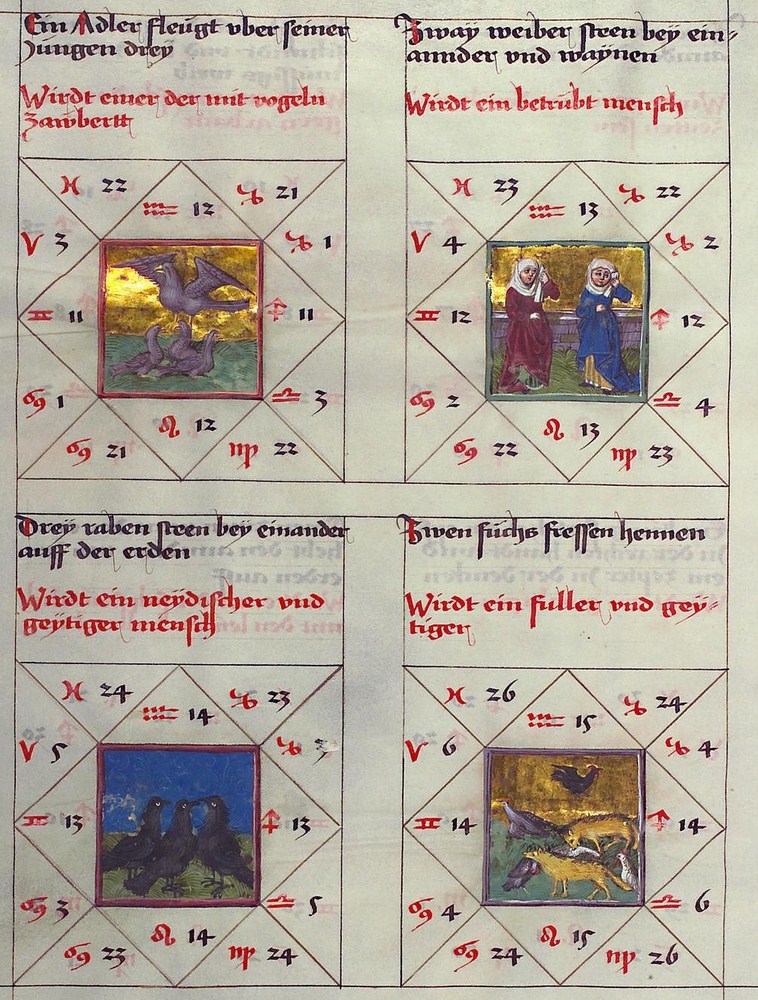 Ein Adler fleugt vber seiner
Jungen drey
Wirdt einer der mit vogeln
zawbertt
♓ 22
♒ 12
♑ 21
♈ 3
♑ 1
♊ 11
♐ 11
♋ 1
♎ 3
♋ 21
♌ 12
♍ 22
Zway weiber steen bey ein-
annder vnd waynen
Wirdt ein betrubt mensch
♓ 23
♒ 13
♑ 22
♈ 4
♑ 2
♊ 12
♐ 12
♋ 2
♎ 4
♋ 22
♌ 13
♍ 23
Drey raben steen bey einander
auff der erden
Wirdt ein neydischer vnd
geytiger mensch
♓ 24
♒ 14
♑ 23
♈ 5
♑ 3
♊ 13
♐ 13
♋ 3
♎ 5
♋ 23
♌ 14
♍ 24
Zwen fuchs fressen hennen
Wirdt ein fuller vnd gey-
tiger
♓ 26
♒ 15
♑ 24
♈ 6
♑ 4
♊ 14
♐ 14
♋ 4
♎ 6
♋ 24
♌ 15
♍ 26